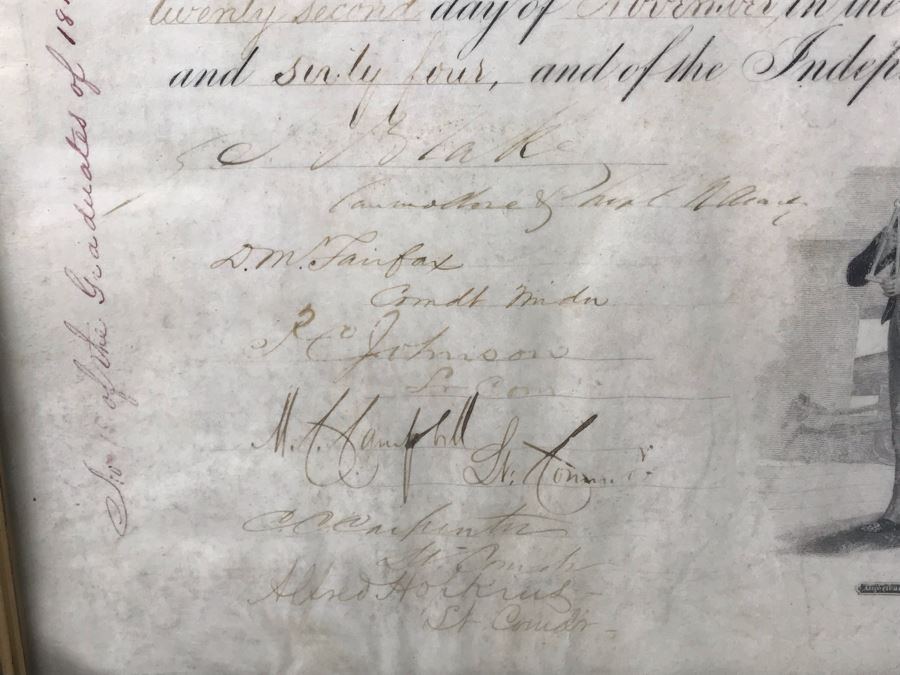 twenty second day of November, in the
and sixty four, and of the Indep
G. S. Blake
Commodore &
D. M. Fairfax
Comdt Midn
P. C. Johnson
Lt Com
M. C. Campbell
Lt. Commdr
C. C. Carpenter
Lt Comdr
Alfred Hopkins
Lt Comdr
No 15 of the Graduates of 18